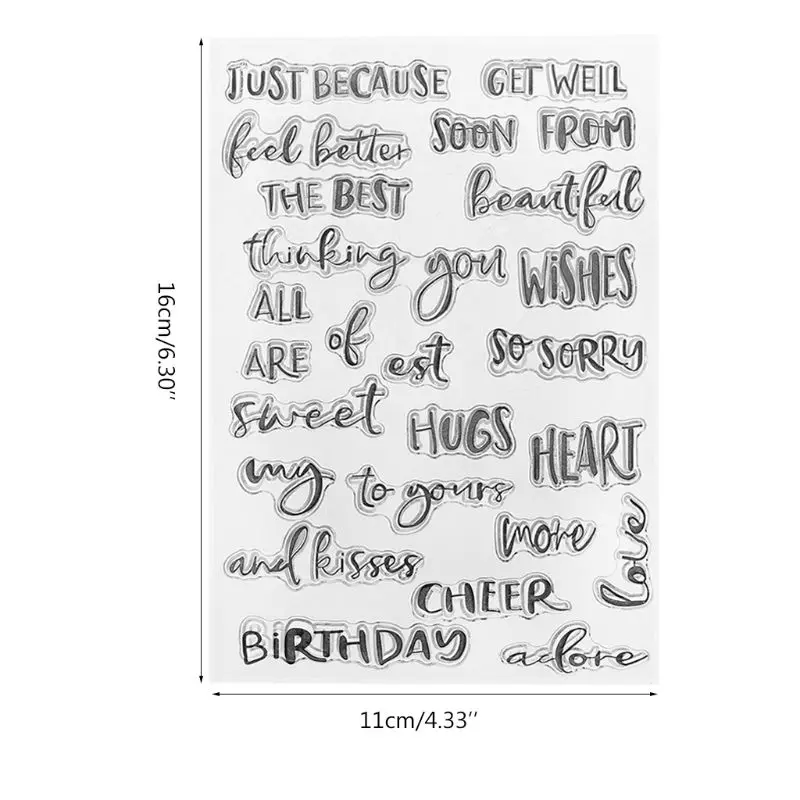 JUST BECAUSE
GET WELL
feel better
SOON FROM
THE BEST
beautiful
thinking you
WiSHES
ALL
of
ARE
est
SO SORRY
sweet
HUGS
HEART
my
to yours
more
love
and kisses
CHEER
BiRTHDAY
adore
16cm/6.30′′
11cm/4.33′′